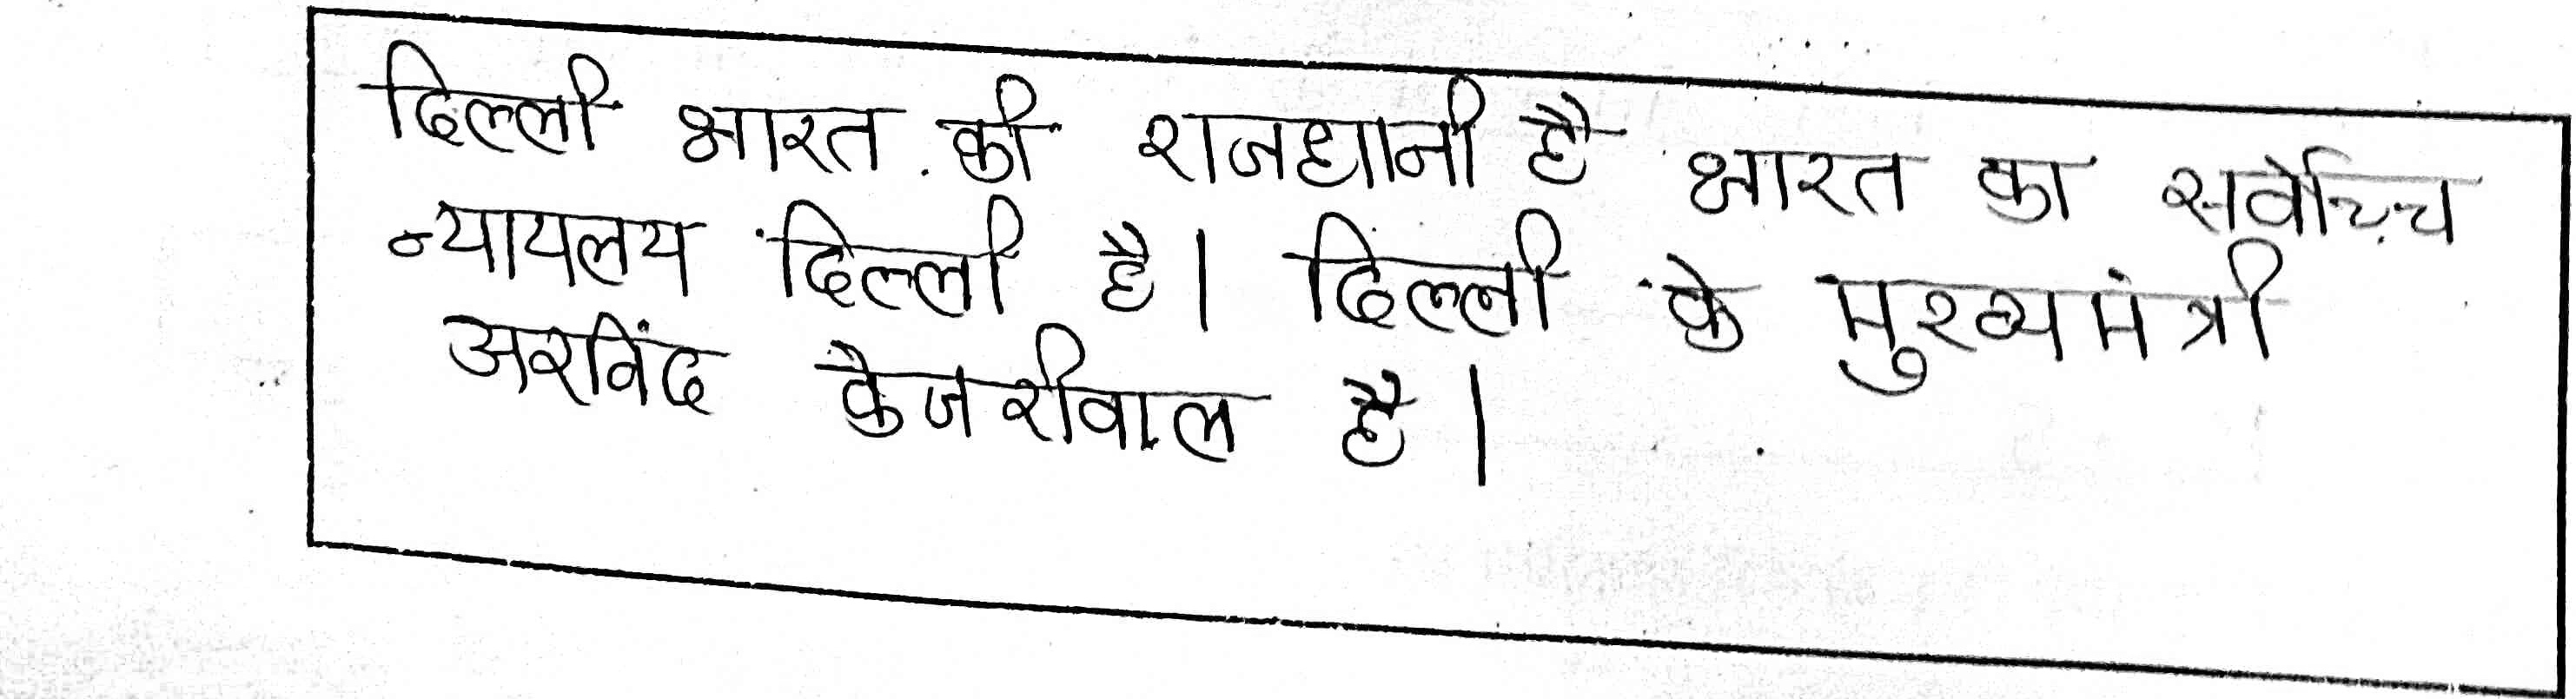 दिल्ली भारत की राजधानी है भारत का सर्वोच्च
न्यायलय दिल्ली है। दिल्ली के मुख्यमंत्री
अरविंद केजरीवाल है।